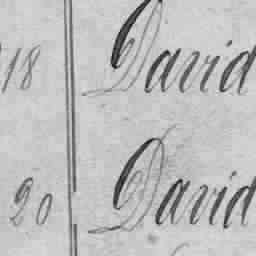 18 David
20 David